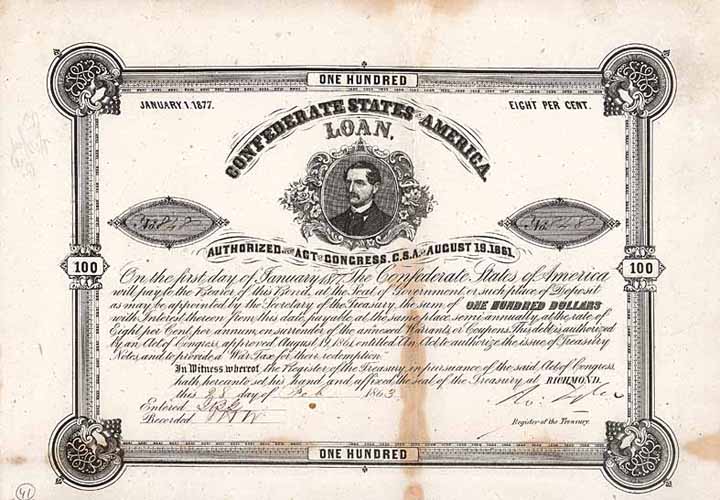 ONE HUNDRED
JANUARY 1, 1877.
EIGHT PER CENT.
CONFEDERATE STATES OF AMERICA
LOAN,
No 848
No 848
AUTHORIZED BY ACT OF CONGRESS, C.S.A. OF AUGUST 19, 1861.
100
100
On the first day of January 1877 The Confederate States of America
will pay to the Bearer of this Bond, at the Seat of Government or such place of Deposit
as may be appointed by the Secretary of the Treasury, the sum of ONE HUNDRED DOLLARS
with Interest thereon from this date, payable at the same place semi annually, at the rate of
Eight per Cent per annum, on surrender of the annexed Warrants or Coupons. This debt is authorized
by an Act of Congress, approved August 19, 1861, entitled An Act to authorize the issue of Treasury
Notes, and to provide a War Tax for their redemption.
In Witness whereof, the Register of the Treasury, in pursuance of the said Act of Congress,
hath hereunto set his hand and affixed the seal of the Treasury, at RICHMOND,
this 28 day of Feb 1863
Entered
Recorded
Register of the Treasury.
ONE HUNDRED
41